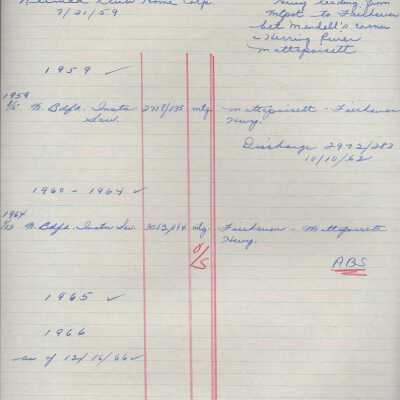 Home Corp.
7/21/59
Hwy leading from
Mtpst to Fairhaven
bet Mendell's corner
& Herring River
Mattapoisett
1959 ✓
1959
N. Bdfd. Instn Sav. mtg. Mattapoisett - Fairhaven
Hwy.
Discharge 2972/282
10/10/62
1960 - 1964 ✓
1964
N. Bdfd. Instn Sv. mtg. Fairhaven - Mattapoisett
Hwy.
O/S
ABS
1965 ✓
1966
as of 12/16/66 ✓